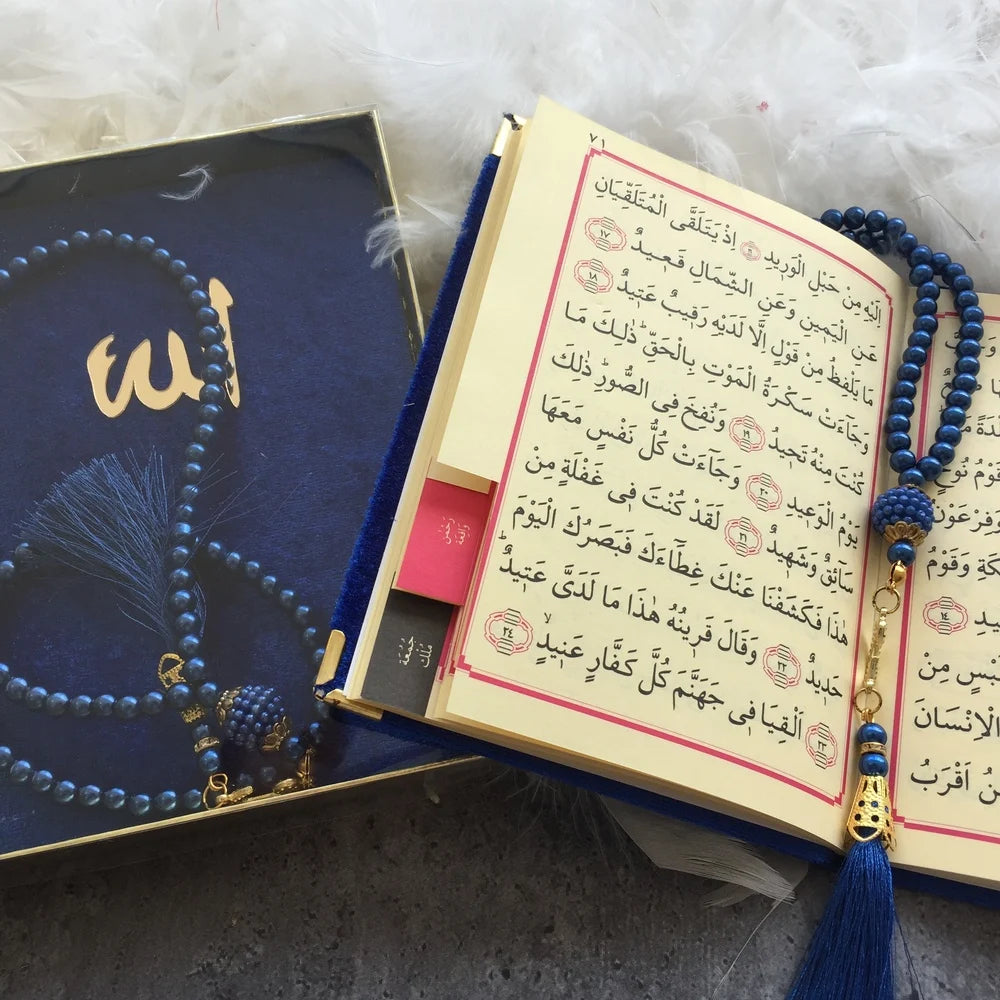 الله
قَوْمُ
وَفِرْعَوْنُ
وَقَوْمُ
١٤
لَبْسٍ مِنْ
الْاِنْسَانَ
اَقْرَبُ
٧١
اِلَيْهِ مِنْ حَبْلِ الْوَرِيدِ ١٦ اِذْ يَتَلَقَّى الْمُتَلَقِّيَانِ
عَنِ الْيَمِينِ وَعَنِ الشِّمَالِ قَعِيدٌ ١٧
مَا يَلْفِظُ مِنْ قَوْلٍ اِلَّا لَدَيْهِ رَقِيبٌ عَتِيدٌ ١٨
وَجَآءَتْ سَكْرَةُ الْمَوْتِ بِالْحَقِّ ذٰلِكَ مَا
كُنْتَ مِنْهُ تَحِيدُ ١٩ وَنُفِخَ فِى الصُّورِ ذٰلِكَ
يَوْمُ الْوَعِيدِ ٢٠ وَجَآءَتْ كُلُّ نَفْسٍ مَعَهَا
سَآئِقٌ وَشَهِيدٌ ٢١ لَقَدْ كُنْتَ فِى غَفْلَةٍ مِنْ
هٰذَا فَكَشَفْنَا عَنْكَ غِطَآءَكَ فَبَصَرُكَ الْيَوْمَ
حَدِيدٌ ٢٢ وَقَالَ قَرِينُهُ هٰذَا مَا لَدَىَّ عَتِيدٌ
٢٣ اَلْقِيَا فِى جَهَنَّمَ كُلَّ كَفَّارٍ عَنِيدٍ ٢٤
رَحْمٰن
وَاقِعَة
جُمُعَة
مُلْك